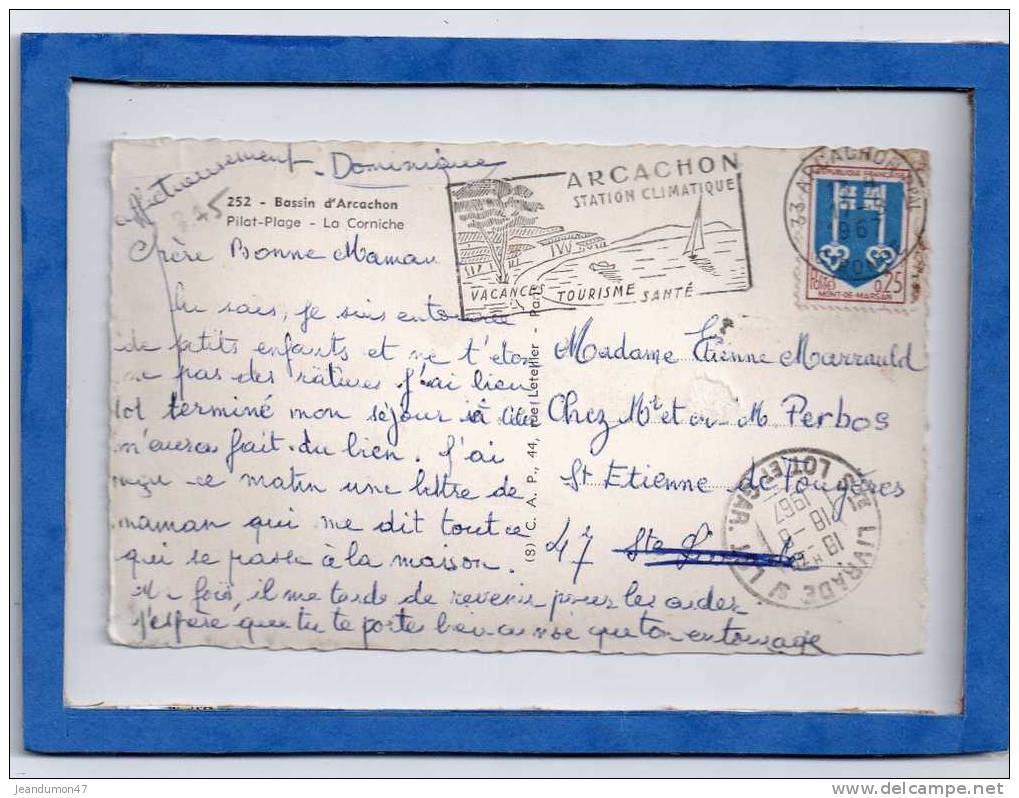 affectueusement - Dominique
252 - Bassin d'Arcachon
Pilat-Plage - La Corniche
Chère Bonne Maman
Tu sais, je suis entourée
de petits enfants et ne t'éton
ne pas des ratures. J'ai bien
tot terminé mon séjour
m'aura fait du bien. J'ai
reçu ce matin une lettre de
maman qui me dit tout ce
qui se passe à la maison.
il me tarde de revenir pour les aider
j'espère que tu te portes bien que ton entourage
ARCACHON
STATION CLIMATIQUE
VACANCES TOURISME SANTÉ
33 ARCACHON
REPUBLIQUE FRANÇAISE
POSTES 0,25
MONT-DE-MARSAN
(8) C. A. P., 44, rue Letellier - Paris
Madame Etienne Marrauld
Chez Mr et M Perbos
St Etienne de Fougères
47
STE LIVRADE S/ LOT
LOT ET GAR.
18 - 8
1967
jeandumon47